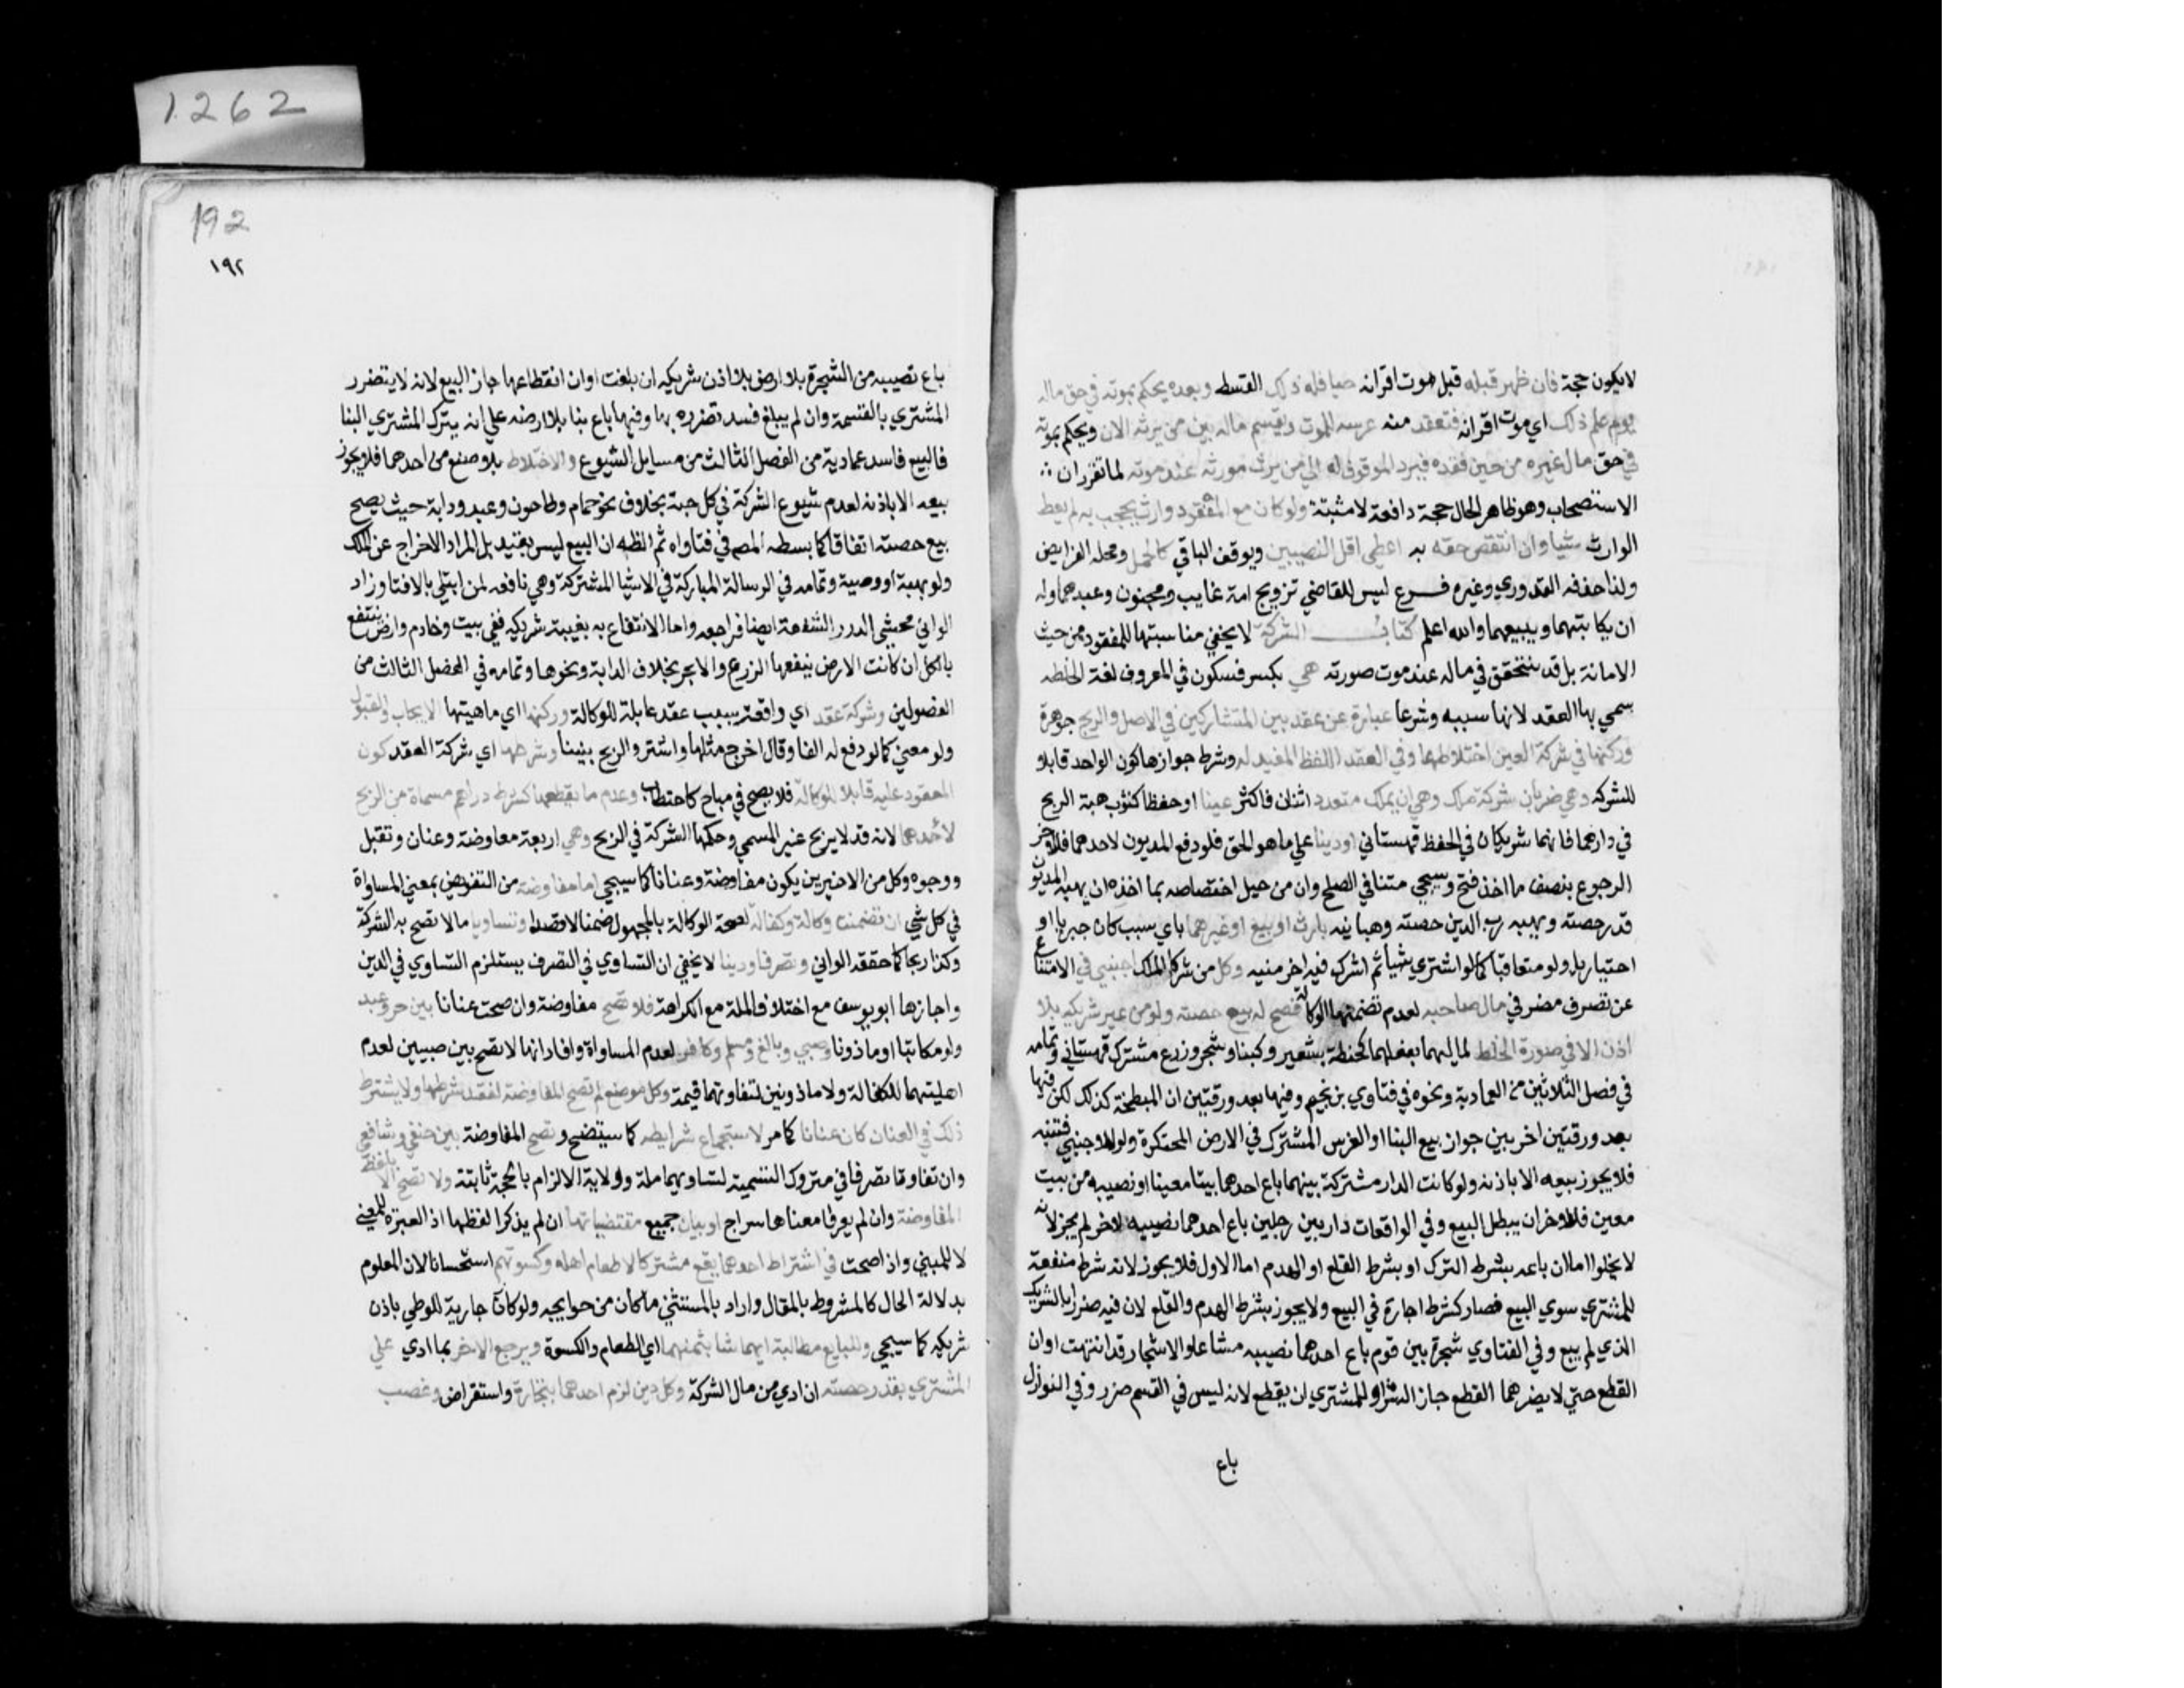 لا يكون حجة فان ظهر قبله قبل موت اقرانه حيا فله ذلك القسط وبعده يحكم بموته في حق ماله
يوم علم ذلك اي موت اقرانه فتعتد منه عرسه للموت ويقسم ماله بين من يرثه الان ويحكم بموته
في حق مال غيره من حين فقده فيرد الموقوف له الي من يرث مورثه عند موته لما تقرر ان
الاستصحاب وهو ظاهر الحال حجة دافعة لا مثبتة ولو كان مع المفقود وارث يحجب به لم يعط
الوارث شيا وان انتقص حقه به اعطي اقل النصيبين ويوقف الباقي كالحمل ومحله الفرايض
ولذا حذفه القدوري وغيره فرع ليس للقاضي تزويج امة غايب ومجنون وعبدهما وله
ان يكاتبهما ويبيعهما والله اعلم كتاب الشركة لا يخفي مناسبتها للمفقود من حيث
الامانة بل قد تتحقق في ماله عند موت مورثه هي بكسر فسكون في المعروف لغة الخلطه
سمي بها العقد لانها سببه وشرعا عبارة عن عقد بين المتشاركين في الاصل والربح جوهرة
وركنها في شركة العين اختلاطهما وفي العقد اللفظ المفيد له وشرط جوازها كون الواحد قابلا
للشركه وهي ضربان شركة ملك وهي ان يملك متعدد اثنان فاكثر عينا او حفظا كثوب هبة الريح
في دارهما فانهما شريكان في الحفظ قهستاني او دينا علي ما هو الحق فلو دفع المديون لاحدهما فللاخر
الرجوع بنصف ما اخذ فتح وسيجي متنا في الصلح وان من حيل اختصاصه بما اخذه ان يهبه المديون
قدر حصته ويهبه رب الدين حصته وهبانيه بارث او بيع او غيرهما باي سبب كان جبريا او
اختياريا ولو متعاقبا كما لو اشتري شيا ثم اشرك فيه اخر منيه وكل من شركا الملك اجنبي في الامتناع
عن تصرف مضر في مال صاحبه لعدم تضمنها الوكالة فصح له بيع حصته ولو من غير شريكه بلا
اذن الا في صورة الخلط لماليهما بفعلهما كحنطة بشعير وكبنا وشجر وزرع مشترك قهستاني وتمامه
في فصل الثلاثين من العمادية ونحوه في فتاوي بن نجيم وفيها بعد ورقتين ان المبطخة كذلك لكن فيها
بعد ورقتين اخريين جواز بيع البنا او الغرس المشترك في الارض المحتكرة ولو لاجنبي فتنبه
فلا يجوز بيعه الا باذنه ولو كانت الدار مشتركة بينهما باع احدهما بيتا معينا او نصيبه من بيت
معين فللاخر ان يبطل البيع وفي الواقعات دار بين رجلين باع احدهما نصيبه لاخر لم يجز لانه
لا يخلوا اما ان باعه بشرط الترك او بشرط القلع او الهدم اما الاول فلا يجوز لانه شرط منفعة
للمشتري سوي البيع فصار كشرط اجارة في البيع ولا يجوز بشرط الهدم والقلع لان فيه ضررا بالشريك
الذي لم يبع وفي الفتاوي شجرة بين قوم باع احدهما نصيبه مشاعا والاشجار قد انتهت اوان
القطع حتي لا يضرهما القطع جاز الشرا وللمشتري ان يقطع لانه ليس في القسم ضرر وفي النوازل
باع
1262
192
١٩٢
باع نصيبه من الشجرة بلا ارض بلا اذن شريكه ان بلغت اوان انقطاعها جاز البيع لانه لا يتضرر
المشتري بالقسمة وان لم يبلغ فسد تضرره بها وفيها باع بنا بلا ارضه علي انه يترك المشتري البنا
فالبيع فاسد عمادية من الفصل الثالث من مسايل الشيوع والاختلاط بلا صنع من احدهما فلا يجوز
بيعه الا باذنه لعدم شيوع الشركة في كل حبة بخلاف نحو حمام وطاحون وعبد ودابة حيث يصح
بيع حصته اتفاقا كما بسطه المص في فتاواه ثم الظه ان البيع ليس بقيد بل المراد الاخراج عن الملك
ولو بهبة او وصية وتمامه في الرسالة المباركة في الاشيا المشتركة وهي نافعه لمن ابتلي بالافتا وزاد
الواني محشي الدرر الشفعة ايضا فراجعه واما الانتفاع به بغيبة شريكه ففي بيت وخادم وارض ينتفع
بالكل ان كانت الارض ينفعها الزرع والا بجر بخلاف الدابة ونحوها وتمامه في الفصل الثالث من
الفصولين وشركة عقد اي واقعة بسبب عقد قابلة للوكالة وركنها اي ماهيتها الايجاب والقبول
ولو معني كما لو دفع له الفا وقال اخرج مثلها واشتر والربح بيننا وشرطها اي شركة العقد كون
المعقود عليه قابلا للوكالة فلا يصح في مباح كاحتطاب وعدم ما يقطعها كشرط دراهم مسماة من الربح
لاحدهما لانه قد لا يربح غير المسمي وحكمها الشركة في الربح وهي اربعة معاوضة وعنان وتقبل
ووجوه وكل من الاخيرين يكون مفاوضة وعنانا كما سيجي اما مفاوضة من التفويض بمعني المساواة
في كل شي ان تضمنت وكالة وكفالة لصحة الوكالة بالمجهول ضمنا لا قصدا وتساويا مالا تصح به الشركة
وكذا ربحا كما حققه الواني وتصرفا ودينا لا يخفي ان التساوي في التصرف يستلزم التساوي في الدين
واجازها ابو يوسف مع اختلاف الملة مع الكراهة فلا تصح مفاوضة وان صحت عنانا بين حر وعبد
ولو مكاتبا او ماذونا وصبي وبالغ ومسلم وكافر لعدم المساواة وافاد انها لا تصح بين صبيين لعدم
اهليتهما للكفالة ولا ماذونين لتفاوتهما قيمة وكل موضع لم تصح المفاوضة لفقد شرطها ولا يشترط
ذلك في العنان كان عنانا كما مر لاستجماع شرايطه كما سيتضح وتصح المفاوضة بين حنفي وشافعي
وان تفاوتا تصرفا في متروك التسمية لتساويهما ملة وولاية الالزام بالحجة ثابتة ولا تصح الا بلفظ
المفاوضة وان لم يعرفا معناها سراج او بيان جميع مقتضياتها ان لم يذكرا لفظها اذ العبرة للمعني
لا للمبني واذا صحت في اشتراط احدهما يقع مشتركا الا طعام اهله وكسوتهم استحسانا لان المعلوم
بدلالة الحال كالمشروط بالمقال واراد بالمستثني ما كان من حوايجه ولو كانت جارية للوطي باذن
شريكه كما سيجي وللبايع مطالبة ايهما شا بثمنهما اي الطعام والكسوة ويرجع الاخر بما ادي علي
المشتري بقدر حصته ان ادي من مال الشركة وكل دين لزم احدهما بتجارة واستقراض وغصب